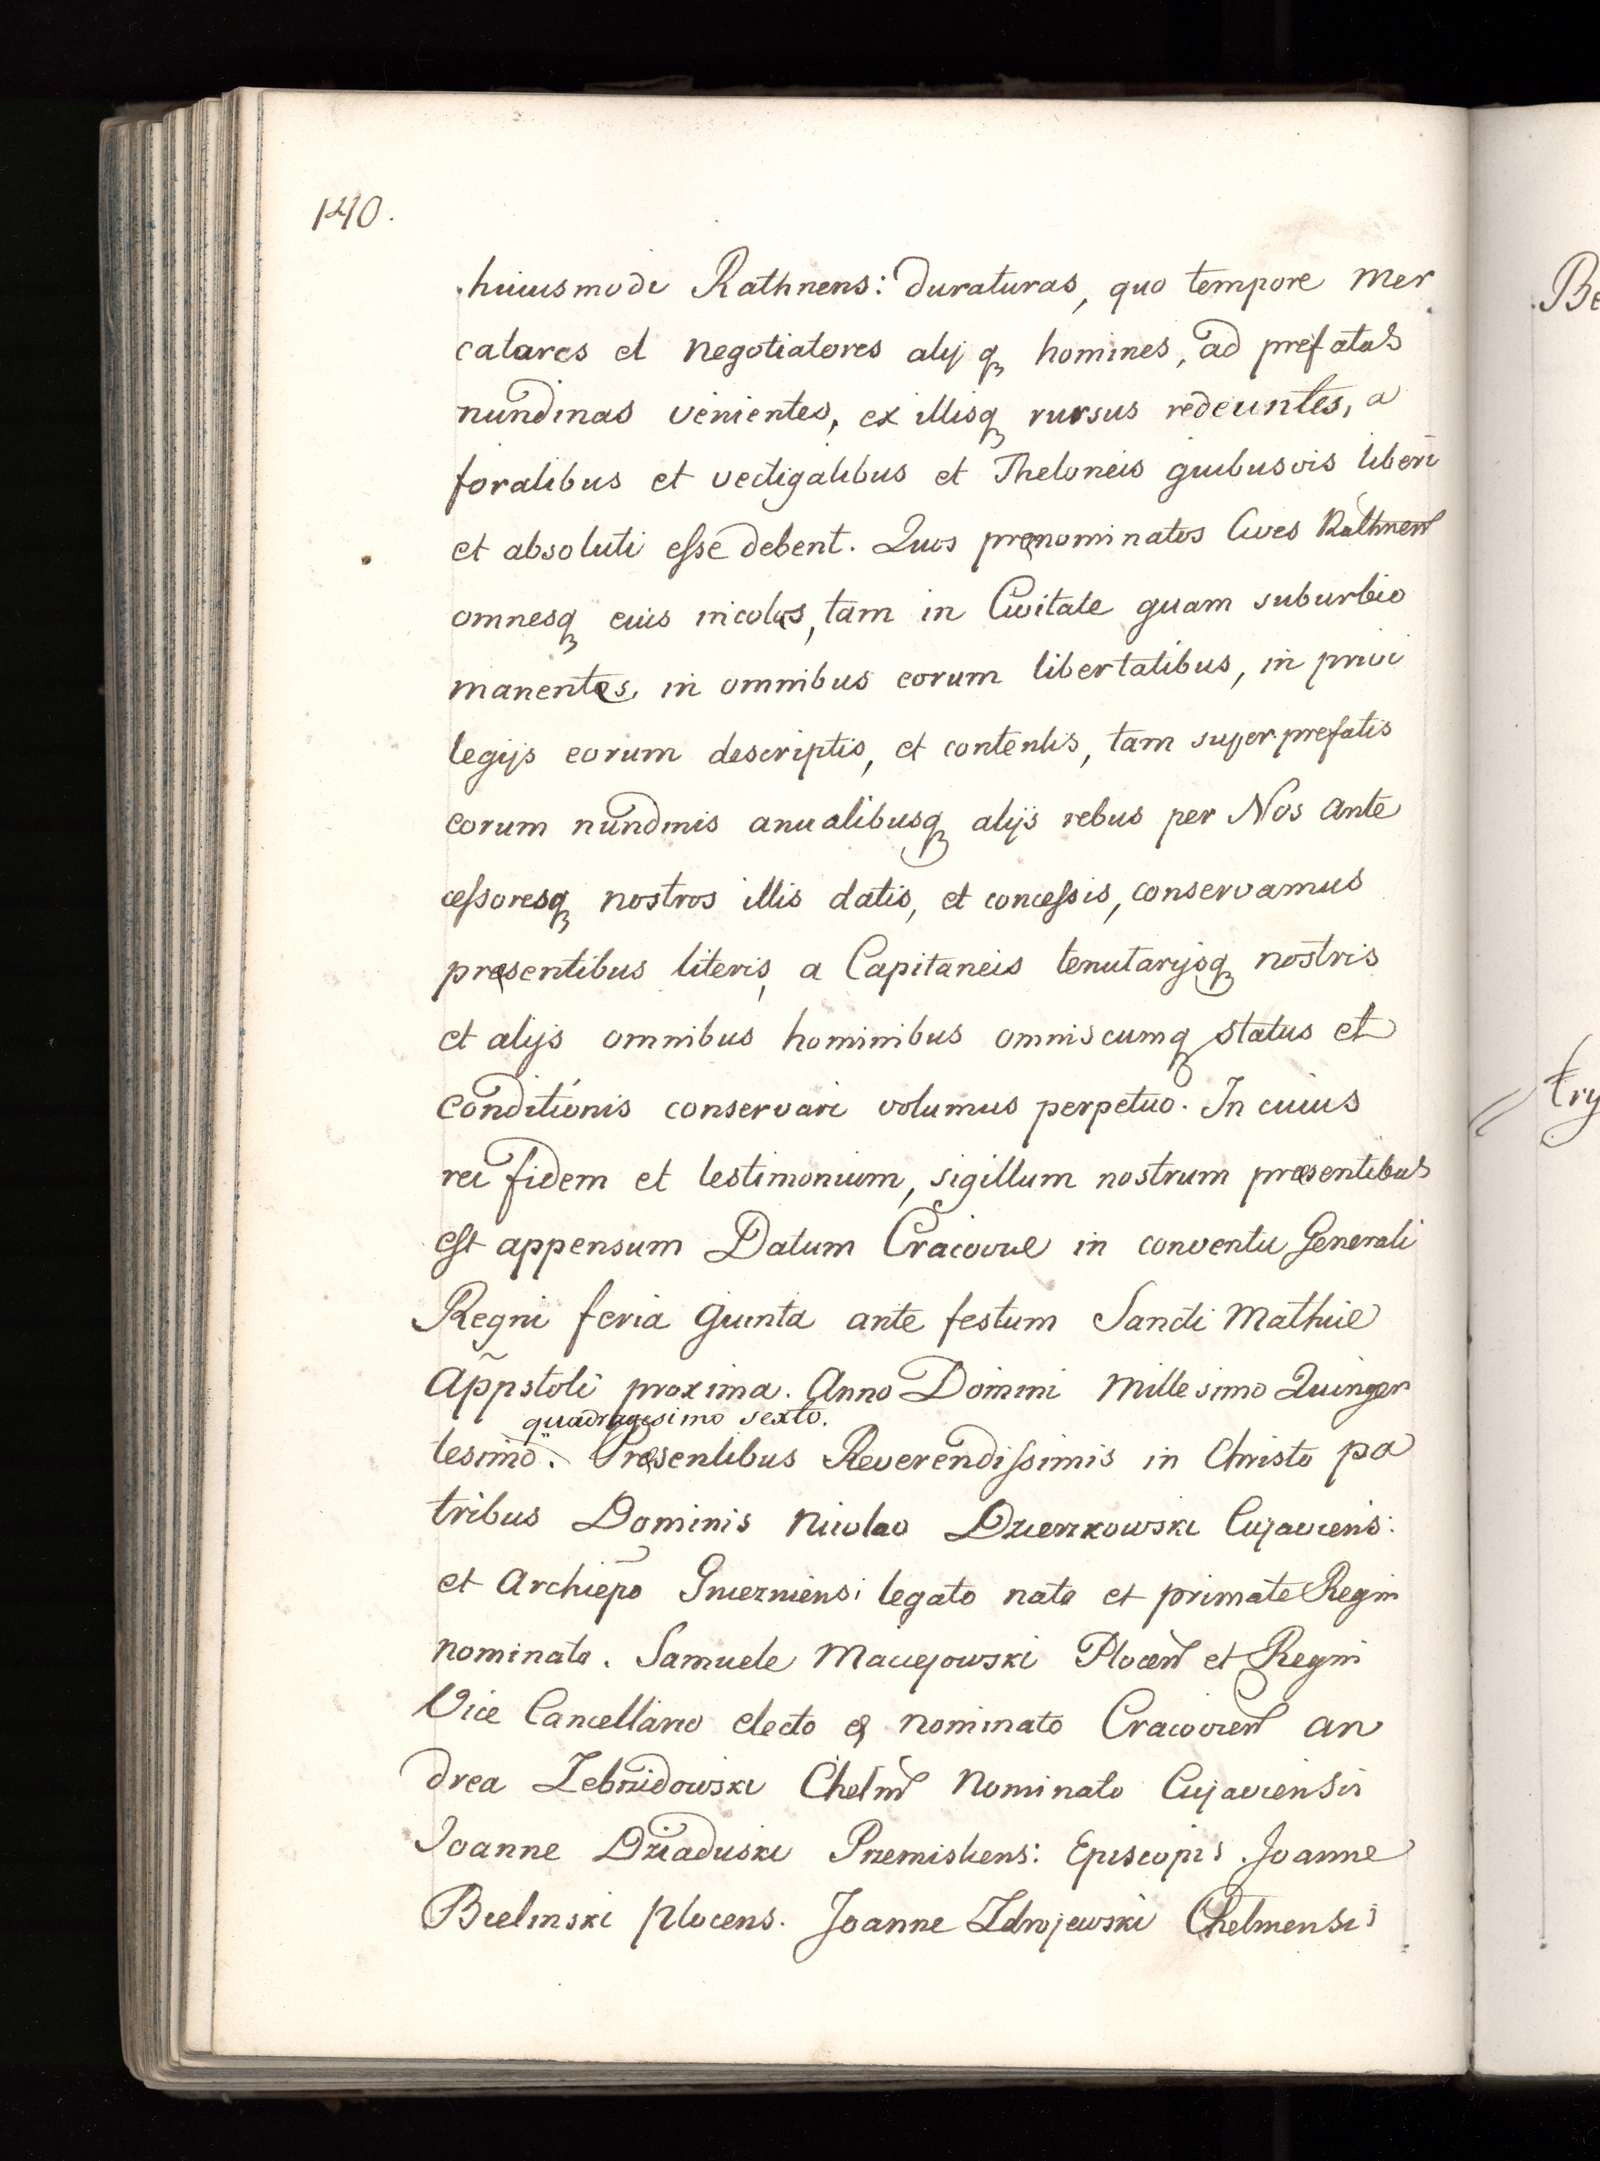 140.
huiusmodi Rathnens: duraturas, quo tempore mer
catares et negotiatores alij q₃ homines, ad prefatas
nundinas venientes, ex illisq₃ rursus redeuntes, a
foralibus et vectigalibus et Theloneis quibusvis liberi
et absoluti esse debent. Quos prenominatos Cives Rathnen
omnesq₃ eius incolas, tam in Civitate quam suburbio
manentes, in omnibus eorum libertatibus, in privi
legijs eorum descriptis, et contentis, tam super prefatis
eorum nundinis anualibusq₃ alijs rebus per Nos ante
cessoresq₃ nostros illis datis, et concessis, conservamus
presentibus literis, a Capitaneis tenutarijsq₃ nostris
et alijs omnibus hominibus omniscumq₃ status et
conditionis conservari volumus perpetuo. In cuius
rei fidem et testimonium, sigillum nostrum presentibus
est appensum Datum Cracoviae in conventu Generali
Regni feria quinta ante festum Sancti Mathiae
App̃stoli proxima. Anno Domini Millesimo Quingen
quadragesimo sexto.
tesimo. Presentibus Reverendissimis in Christo pa
tribus Dominis Nicolao Dzierzkowski Cujaviens:
et Archiepo Gniezniensi legato nato et primate Regni
nominato. Samuele Maciejowski Plocen et Regni
Vice Cancellario electo & nominato Cracovien an
drea Zebrzidowski Chelm Nominato Cujaviensis
Joanne Dziaduski Przemisliens: Episcopis. Joanne
Bielinski Plocens. Joanne Zdrojewski Chelmensis
Be
try